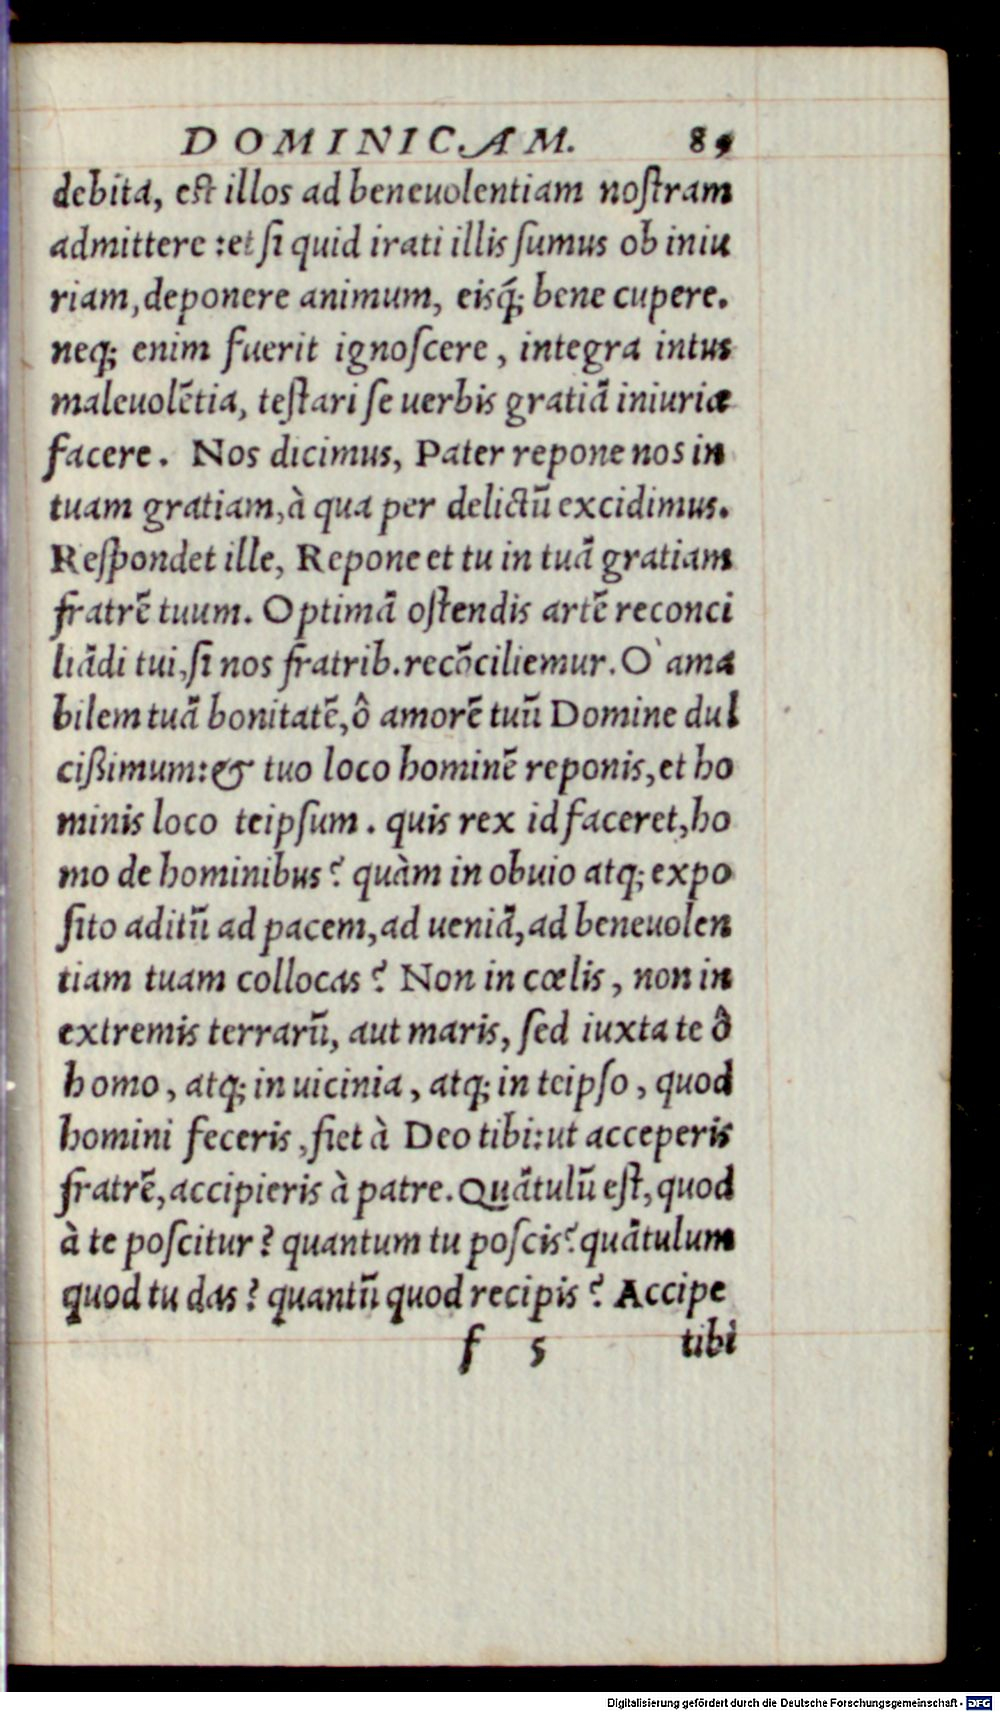 DOMINICAM. 89
debita, est illos ad beneuolentiam nostram
admittere : et si quid irati illis sumus ob iniu
riam, deponere animum, eisq́; bene cupere.
neq; enim fuerit ignoscere, integra intus
maleuolētia, testari se uerbis gratiā iniuriæ
facere. Nos dicimus, Pater repone nos in
tuam gratiam, à qua per delictū excidimus.
Respondet ille, Repone et tu in tuā gratiam
fratrē tuum. Optimā ostendis artē reconci
liādi tui, si nos fratrib. recōciliemur. O` ama
bilem tuā bonitatē, ô amorē tuū Domine dul
cißimum: & tuo loco hominē reponis, et ho
minis loco teipsum. quis rex id faceret, ho
mo de hominibus? quàm in obuio atq; expo
sito aditū ad pacem, ad ueniā, ad beneuolen
tiam tuam collocas? Non in cœlis, non in
extremis terrarū, aut maris, sed iuxta te ô
homo, atq; in uicinia, atq; in teipso, quod
homini feceris, fiet à Deo tibi: ut acceperis
fratrē, accipieris à patre. Quātulū est, quod
à te poscitur? quantum tu poscis? quātulum
quod tu das? quantū quod recipis? Accipe
f 5 tibi
Digitalisierung gefördert durch die Deutsche Forschungsgemeinschaft - DFG